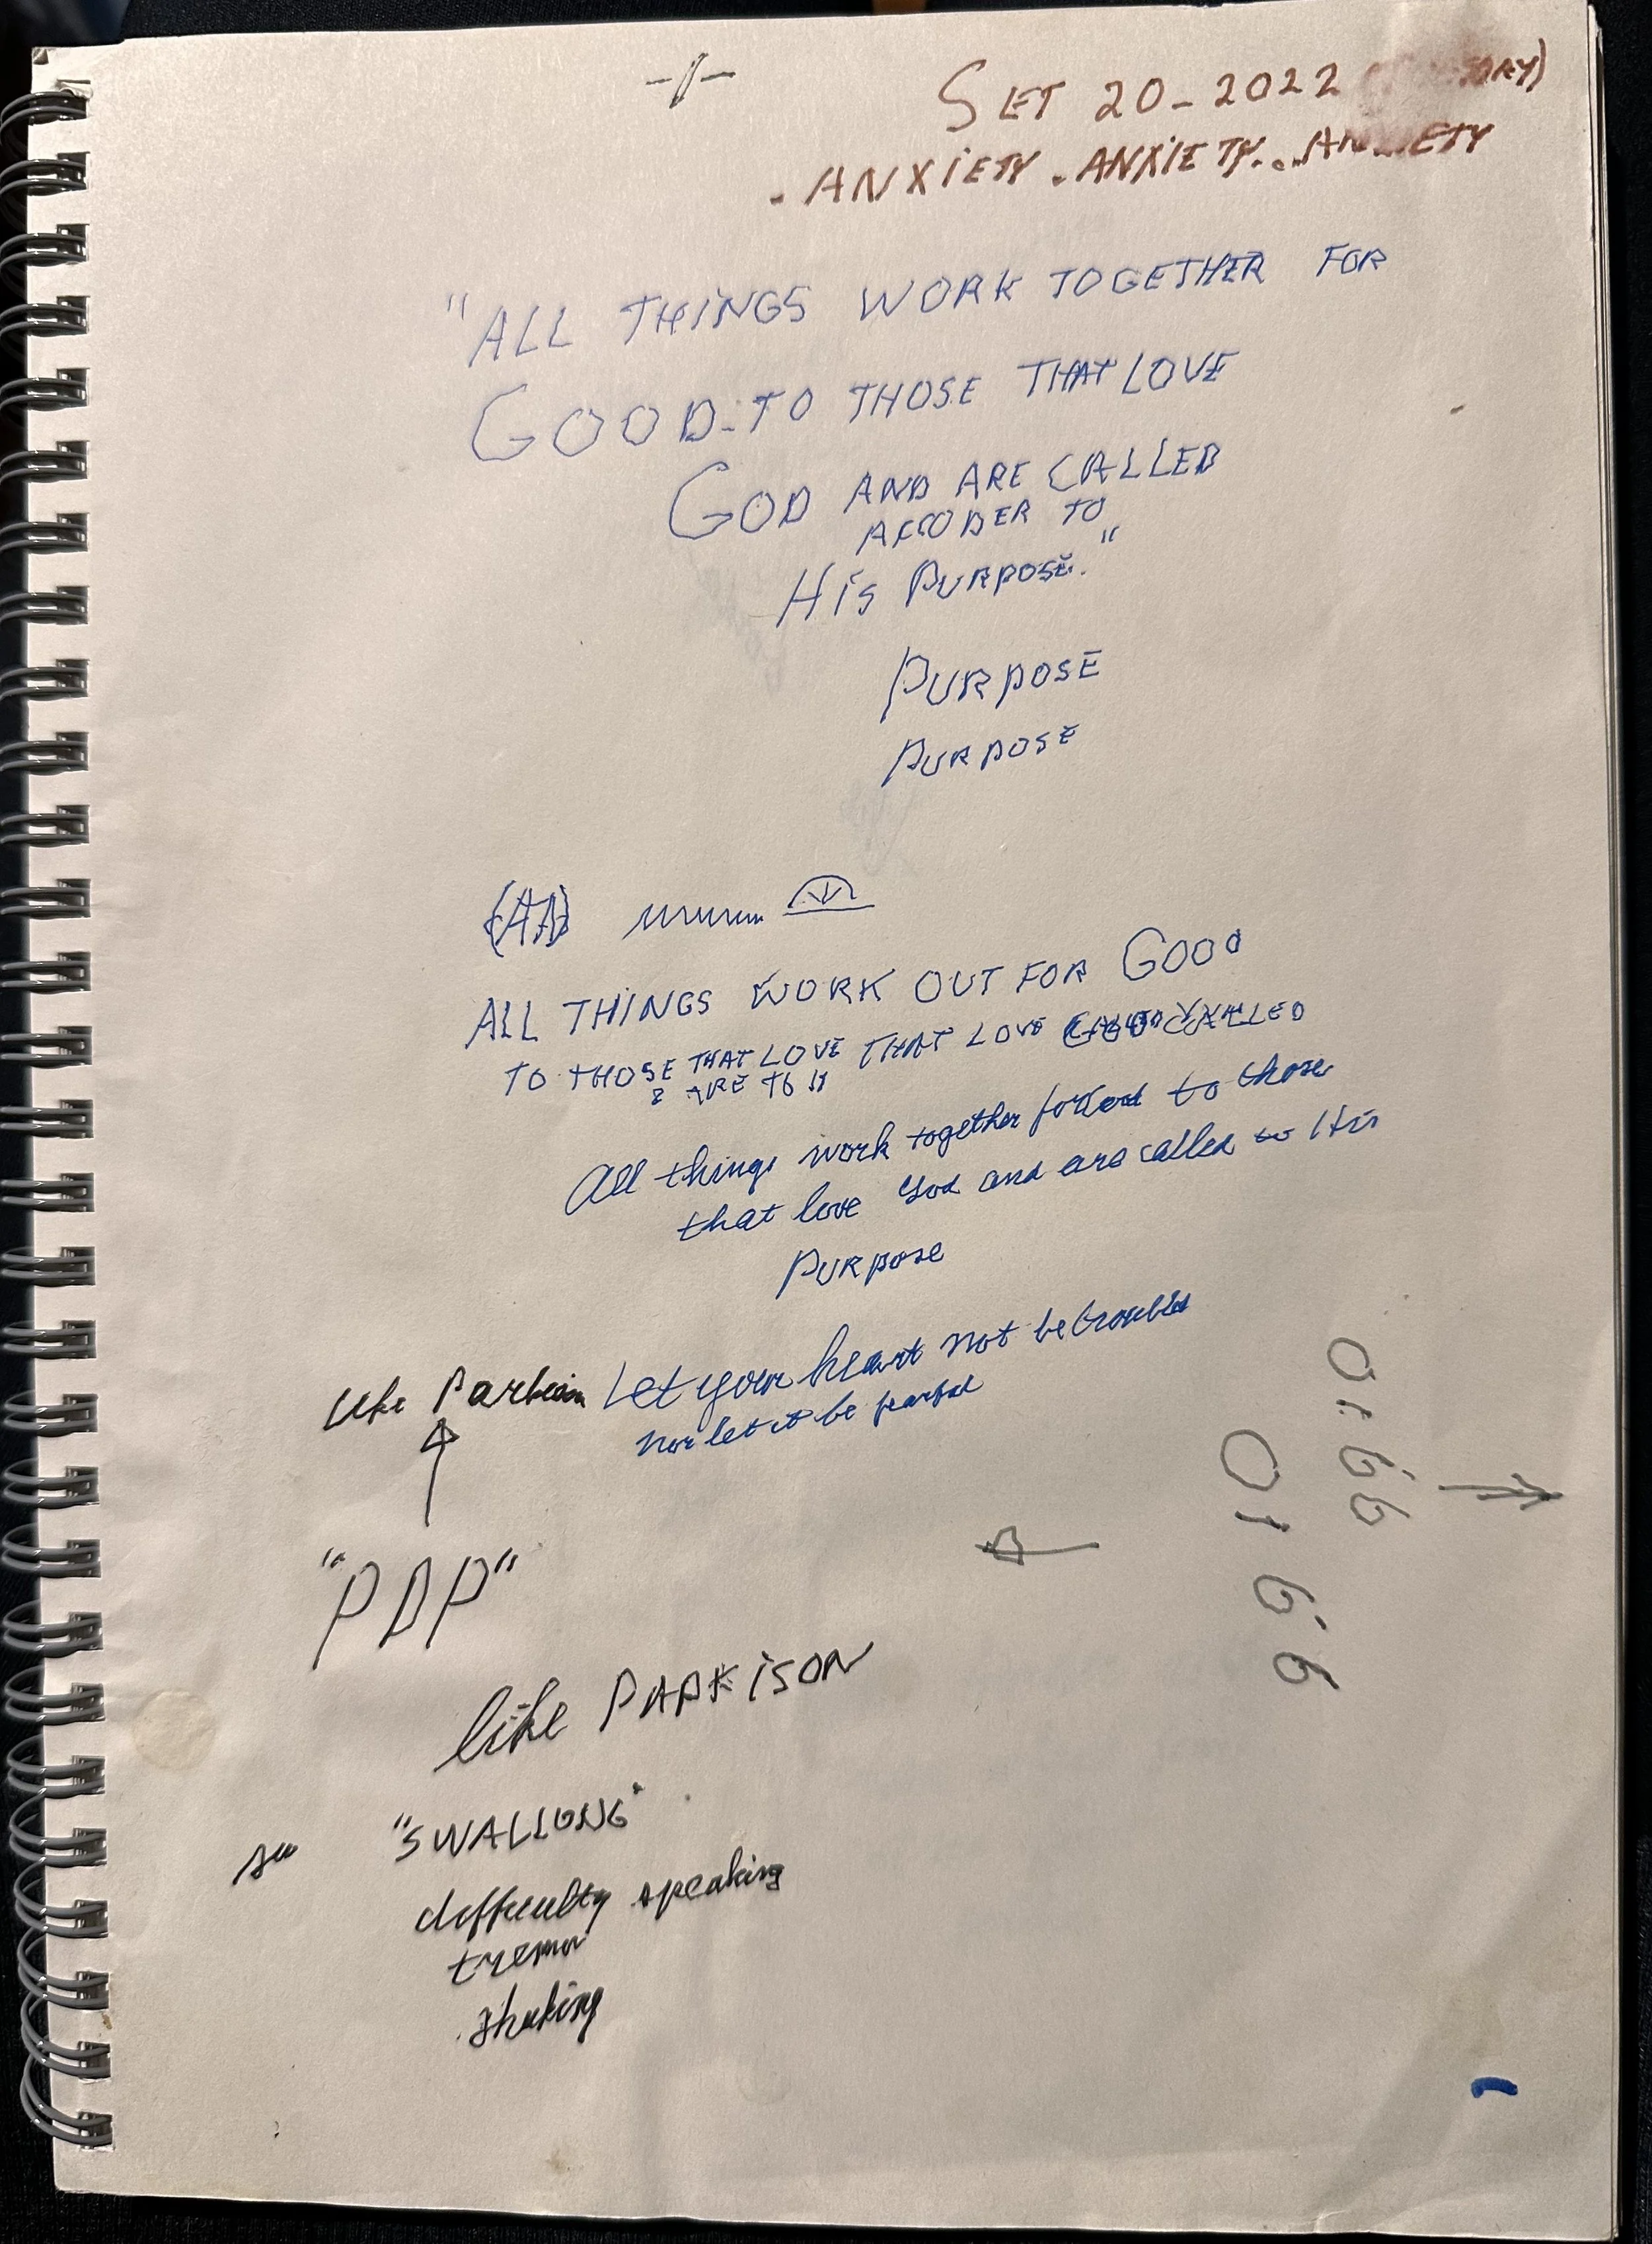 SET 20-2022
. ANXIETY . ANXIETY... ANXIETY
"ALL THINGS WORK TOGETHER FOR
GOOD - TO THOSE THAT LOVE
GOD AND ARE CALLED
ACCODER TO
HIS PURPOSE."
PURPOSE
PURPOSE
ALL THINGS WORK OUT FOR GOOD
TO THOSE THAT LOVE THAT LOVE CALLED
& ARE TO
All things work together for to those
that love God and are called to His
PURPOSE
Let your heart not be troubled
nor let it be fearful
like
"PDP"
like PARKISON
"SWALLONG"
difficulty speaking
tremor
shaking
01.66
01 66